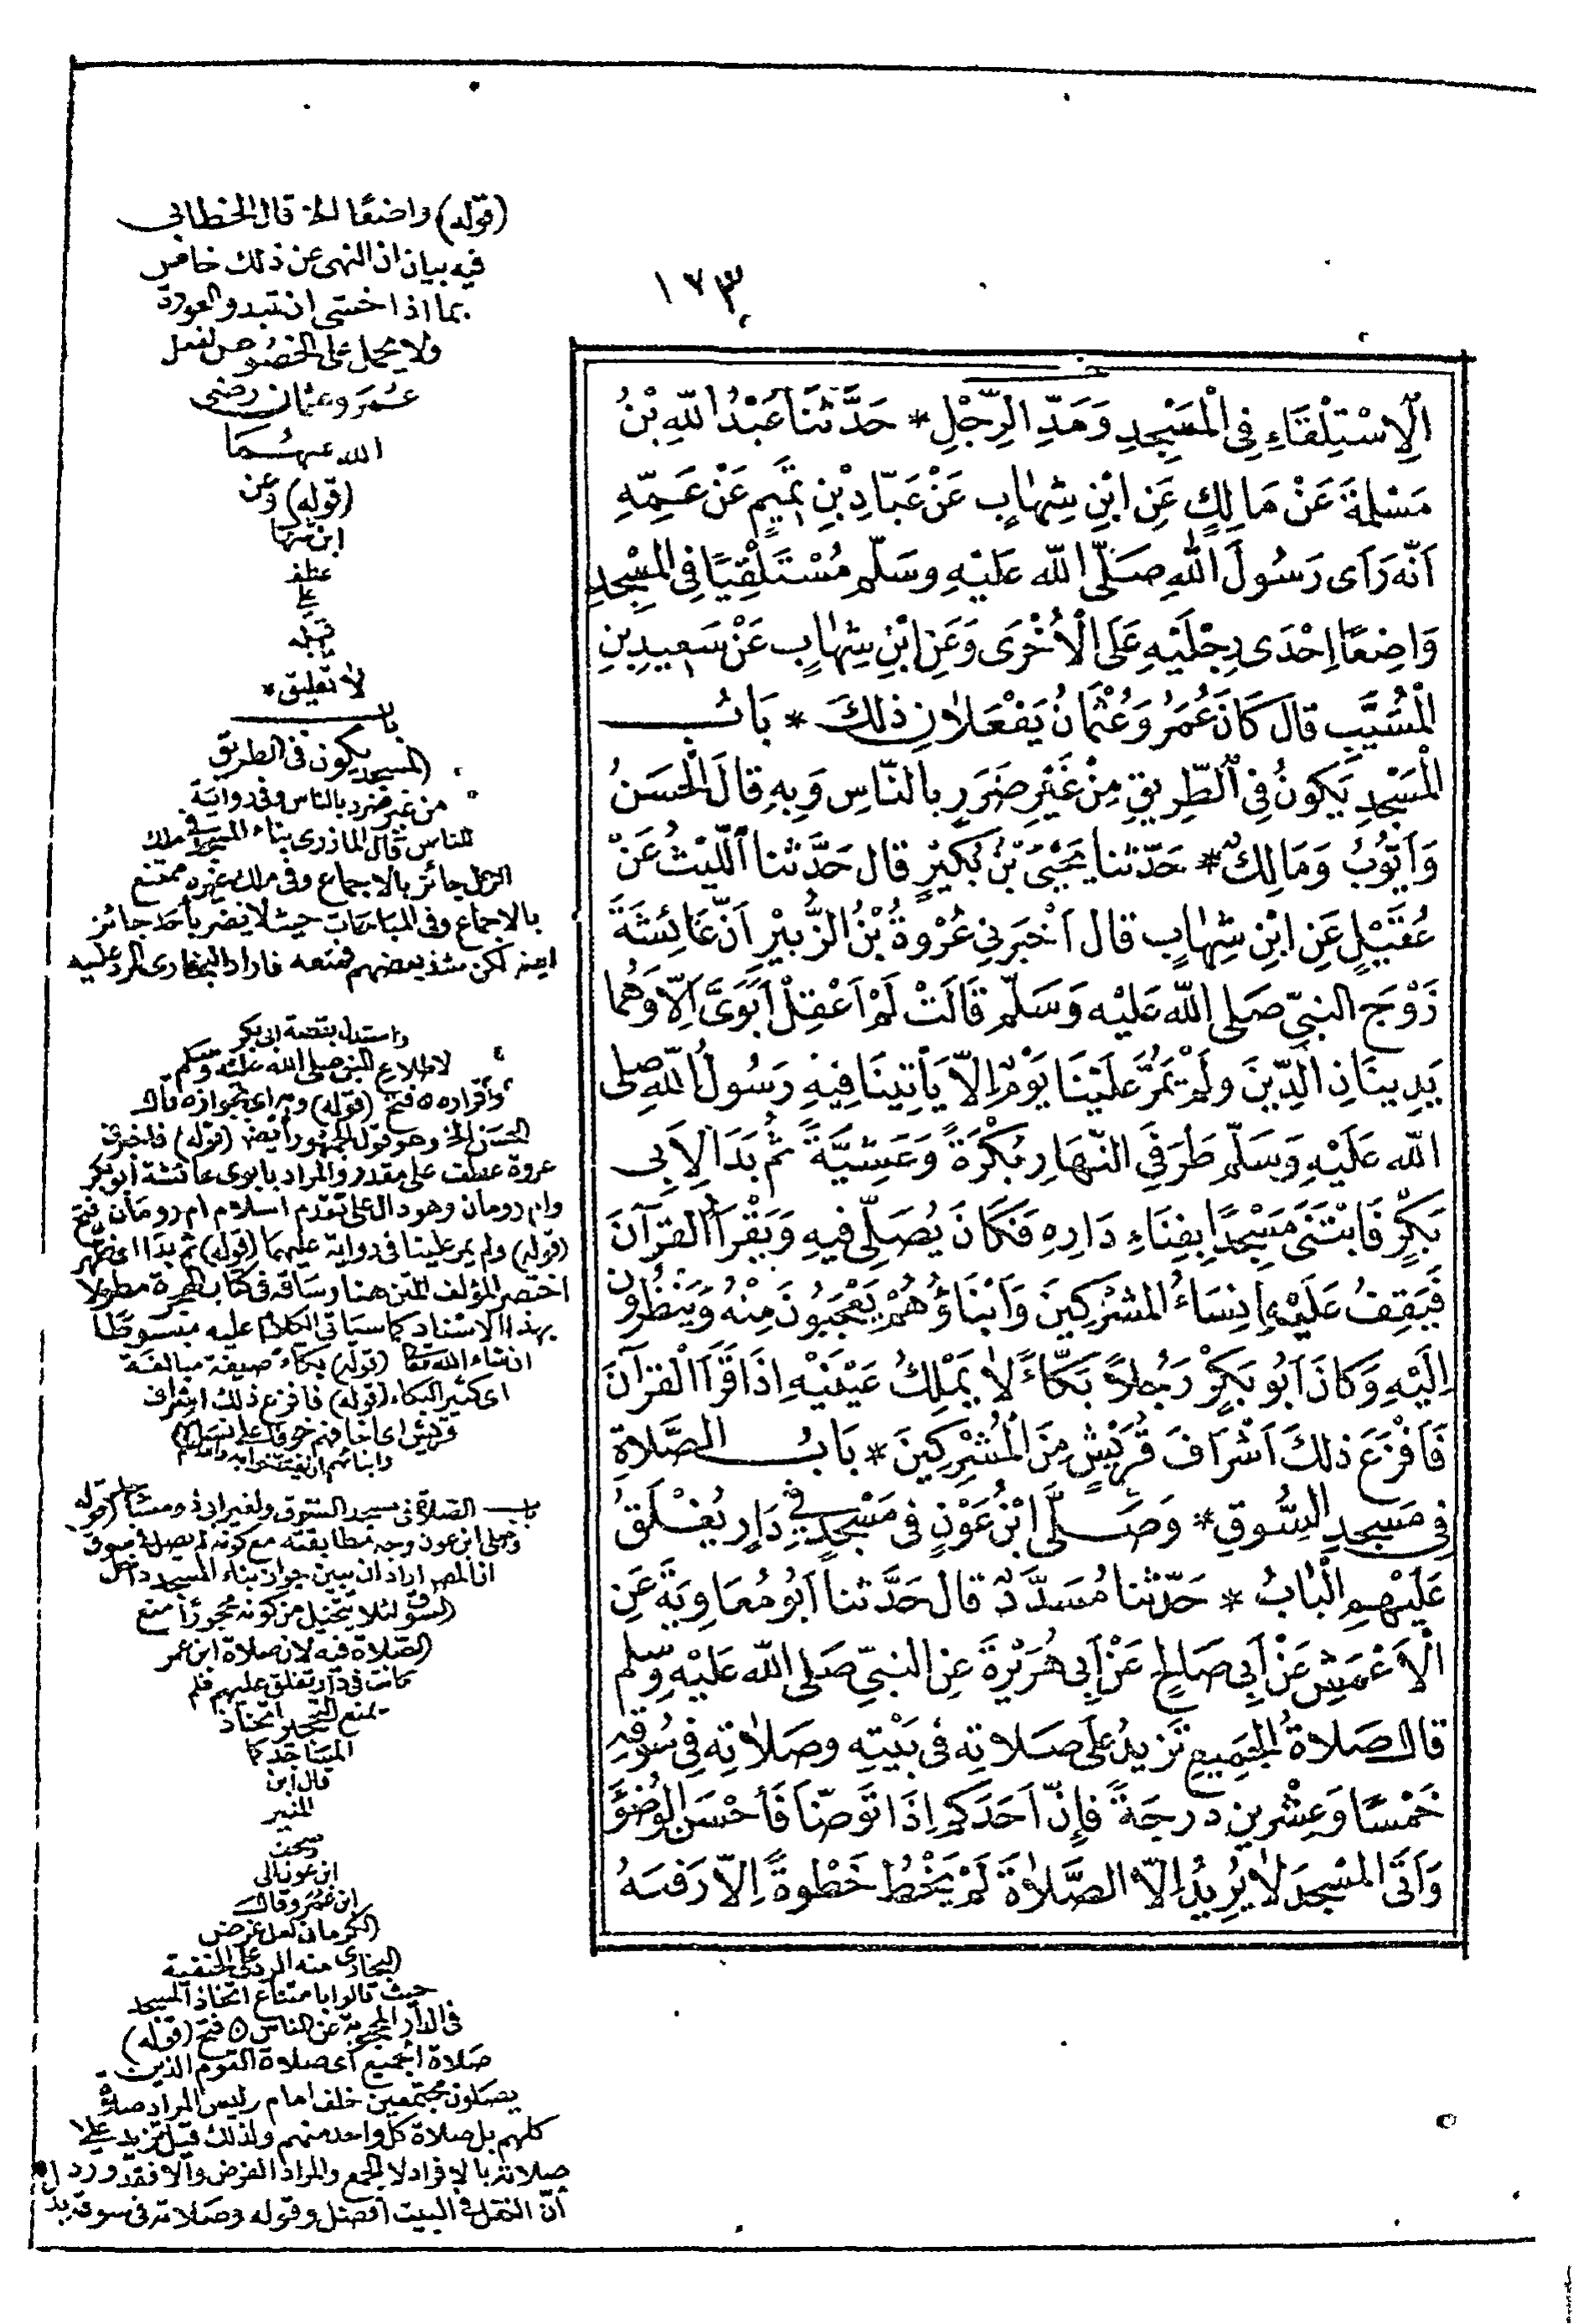 ١٧٣
الْاِسْتِلْقَاءِ فِى الْمَسْجِدِ وَمَدِّ الرِّجْلِ * حَدَّثَنَا عَبْدُ اللّٰهِ بْنُ
مَسْلَمَةَ عَنْ مَالِكٍ عَنِ ابْنِ شِهَابٍ عَنْ عَبَّادِ بْنِ تَمِيمٍ عَنْ عَمِّهِ
اَنَّهُ رَاَى رَسُولَ اللّٰهِ صَلَّى اللّٰه عَلَيْهِ وسَلَّم مُسْتَلْقِيًا فِى الْمَسْجِدِ
وَاضِعًا اِحْدَى رِجْلَيْهِ عَلَى الْاُخْرَى وَعَنِ ابْنِ شِهَابٍ عَنْ سَعِيدِ بْنِ
الْمُسَيَّبِ قال كَانَ عُمَرُ وَعُثْمَانُ يَفْعَلَانِ ذلِكَ * بَابُ
الْمَسْجِدِ يَكُونُ فِى الطَّرِيقِ مِنْ غَيْرِ ضَرَرٍ بالنَّاسِ وَبِهِ قالَ الْحَسَنُ
وَاَيُّوبُ وَمَالِكٌ * حَدَّثنا يَحْيَى بْنُ بُكَيْرٍ قال حَدَّثنا اللَّيْثُ عَنْ
عُقَيْلٍ عَنِ ابْنِ شِهَابٍ قال اَخْبَرَنِى عُرْوَةُ بْنُ الزُّبَيْرِ اَنَّ عَائِشَةَ
زَوْجَ النبىِّ صَلى اللّٰه عَلَيْه وَسَلَّم قَالَتْ لَمْ اَعْقِلْ اَبَوَىَّ اِلَّا وَهُمَا
يَدِينَانِ الدِّينَ ولَمْ يَمُرَّ عَلَيْنَا يَوْمٌ اِلَّا يَأْتِينَا فِيهِ رَسُولُ اللّٰهِ صلى
اللّٰه عَلَيْهِ وَسَلَّم طَرَفَىِ النَّهَارِ بُكْرَةً وَعَشِيَّةً ثُمَّ بَدَا لِاَبِى
بَكْرٍ فَابْتَنَى مَسْجِدًا بِفِنَاءِ دَارِهِ فَكَانَ يُصَلِّى فِيهِ وَيَقْرَأُ القرْآنَ
فَيَقِفُ عَلَيْهِ نِسَاءُ المشْرِكِينَ وَاَبْنَاؤُهُمْ يَعْجَبُونَ مِنْهُ وَيَنْظُرُونَ
اِلَيْهِ وَكَانَ اَبُو بَكْرٍ رَجُلًا بَكَّاءً لَا يَمْلِكُ عَيْنَيْهِ اِذَا قَرَاَ الْقرْآنَ
فَاَفْزَعَ ذلكَ اَشْرَافَ قُرَيْشٍ مِنَ الْمُشْرِكِينَ * بَابُ الصَّلَاةِ
فِى مَسْجِدِ السُّوقِ * وَصَلَّى ابْنُ عَوْنٍ فى مَسْجِدٍ فِى دَارٍ يُغْلَقُ
عَلَيْهِمِ الْبَابُ * حَدّثنا مُسَدَّدٌ قال حَدَّثنا اَبُو مُعَاوِيَةَ عَنِ
الْاَعْمَشِ عَنْ اَبِى صَالِحٍ عَنْ اَبِى هُرَيْرَةَ عَنِ النبىِّ صَلى اللّٰه عَلَيْهِ وسلم
قال صَلاةُ الْجَمِيعِ تَزِيدُ عَلَى صَلاتِهِ فى بَيْتِهِ وصَلاتِهِ فِى سُوقِهِ
خَمْسًا وَعِشْرِينَ درجَةً فَإِنَّ اَحَدَكُمْ اِذَا تَوَضَّأَ فَأَحْسَنَ الوُضُوءَ
وَاَتَى المسْجِدَ لَا يُرِيدُ اِلَّا الصَّلَاةَ لَمْ يَخْطُ خَطْوَةً اِلَّا رَفَعَهُ
(قوله) واضعًا الخ قال الخطابى
فيه بيان ان النهى عن ذلك خاص
بما اذا خشى ان تبدو العورة
ولا يحمل على الخصوص لفعل
عمر وعثمان رضى
الله عنهما
(قوله) وعن
ابن شهاب
عطف
على
قبله
لا تعليق *
باب
المسجد يكون فى الطريق
من غير ضرر بالناس وفى رواية
للناس قال المازرى بناء المسجد فى ملك
الرجل جائز بالاجماع وفى ملك غيره ممتنع
بالاجماع وفى المباحات حيث لا يضر بأحد جائز
ايضا لكن شذ بعضهم فمنعه فاراد البخارى الرد عليه
واستدل بقصة ابى بكر
لاطلاع النبى صلى الله عليه وسلم
واقراره ه فتح (قوله) وبه اى بجوازه قال
الحسن الخ وهو قول الجمهور ايضا (قوله) فاخبرنى
عروة عطف على مقدر والمراد بابوى عائشة ابو بكر
وام رومان وهو دال على تقدم اسلام ام رومان فتح
(قوله) ولم يمر علينا فى رواية عليهما (قوله) ثم بدا اى ظهر
اختصر المؤلف المتن هنا وساقه فى كتاب الهجرة مطولا
بهذا الاسناد كما سياتى الكلام عليه مبسوطا
ان شاء الله تعا (قوله) بكاء صيغة مبالغة
اى كثير البكاء (قوله) فافزع ذلك اشراف
قريش اى اخافهم خوفا على نسائهم
وابنائهم ان يفتتنوا به
باب الصلاة فى مسجد السوق (قوله
وصلى ابن عون وجه مطابقته مع كونه لم يصل فى سوق
ان المص اراد ان يبين جواز بناء المسجد داخل
السوق لئلا يتخيل من كونه محجورا منع
الصلاة فيه لان صلاة ابن عمر
كانت فى دار تغلق عليهم فلم
يمنع التحجير اتخاذ
المسجد كما
قال ابن
المنير
وصحف
ابن عون الى
ابن عمر وقال
الكرمانى لعل غرض
البخارى منه الرد على الحنفية
حيث قالوا بامتناع اتخاذ المسجد
فى الدار المحجوبة عن الناس ه فتح (قوله)
صلاة الجميع اى صلاة القوم الذين
يصلون مجتمعين خلف امام وليس المراد صلاة
كلهم بل صلاة كل واحد منهم ولذلك قيل تزيد على
صلاته بالافراد لا الجمع والمراد الفرض والا فقد ورد
أن النفل فى البيت أفضل وقوله وصلاته فى سوقه